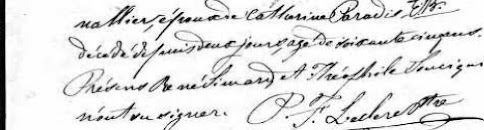 nallier, époux de Catharine Paradis
décédé depuis deux jours agé de soixante cinq ans.
Présens René Simard et Théophile
n'ont su signer. P. F. Leclerc Ptre